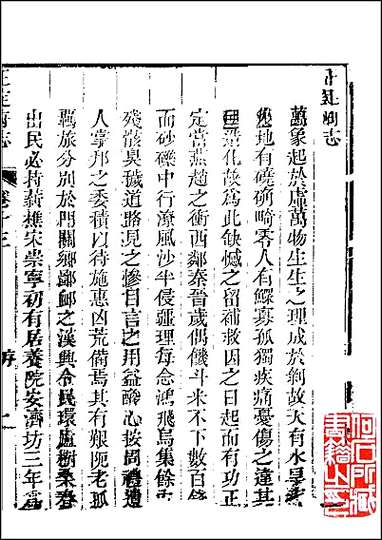 正定府志
萬象起於虛萬物生生之理成於徇故天有水旱
地有磽确畸零人有鰥寡孤獨疾痛憂傷之達其
造化故爲此缺憾之留補救因之日起而有功正
定當燕趙之衝西鄰秦晉歲偶饑斗米不下數百錢
而砂礫中行潦風沙半侵疆理每念鴻飛烏集餘
殘骸臭穢道路見之慘目言之用益酸心按周禮遺
人掌邦之委積凶待施惠凶荒備焉其有艱阨老孤
羈旅分別於門關鄉鄙之漢興令民環廬樹桑
出民必持薪樵宋崇寧初有居養院安濟坊三年
正定府志
卷十三